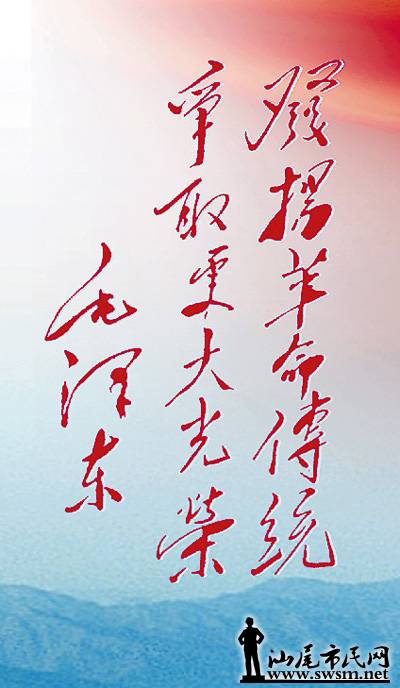 發揚革命傳统
爭取更大光榮
毛泽东
汕尾市民网
www.swsm.net